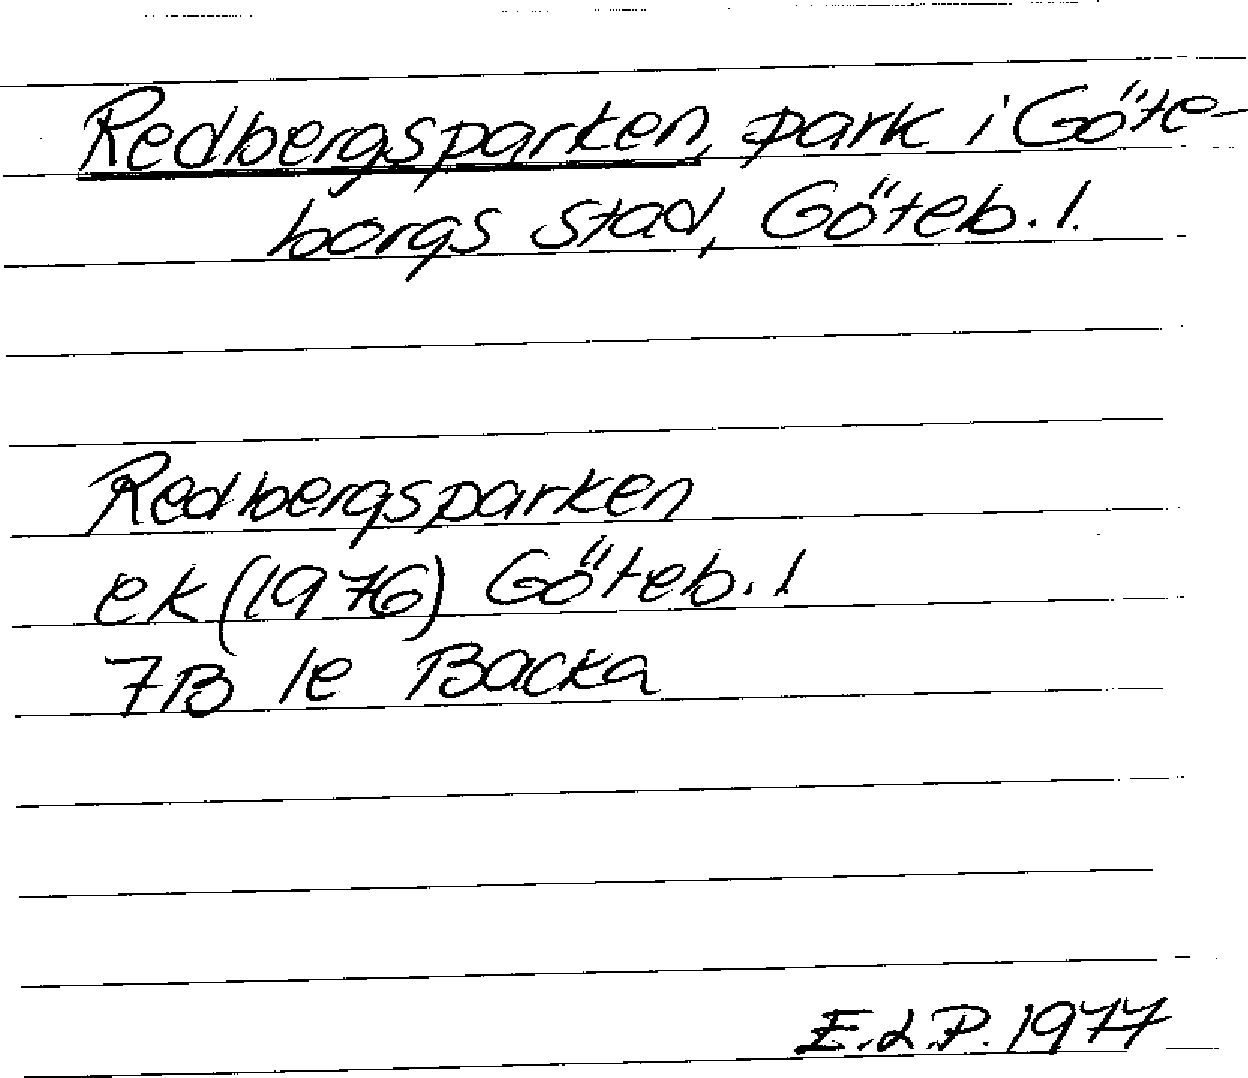 Redbergsparken, park i Göte-
borgs stad, Göteb. l.
Redbergsparken
ek (1976) Göteb. l
7B 1e Backa
E.L.P. 1977